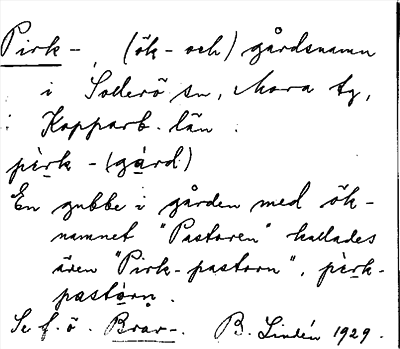 Pirk-, (ök- och) gårdsnamn
i Sollerö sn, Mora tg,
Kopparb. län.
pèrk-(gård)
En gubbe i gården med ök-
namnet "Pastoren" kallades
även "Pirk-pastorn", pèrk-
pastòrn.
Se f.ö. Brar-. B. Lindén 1929.